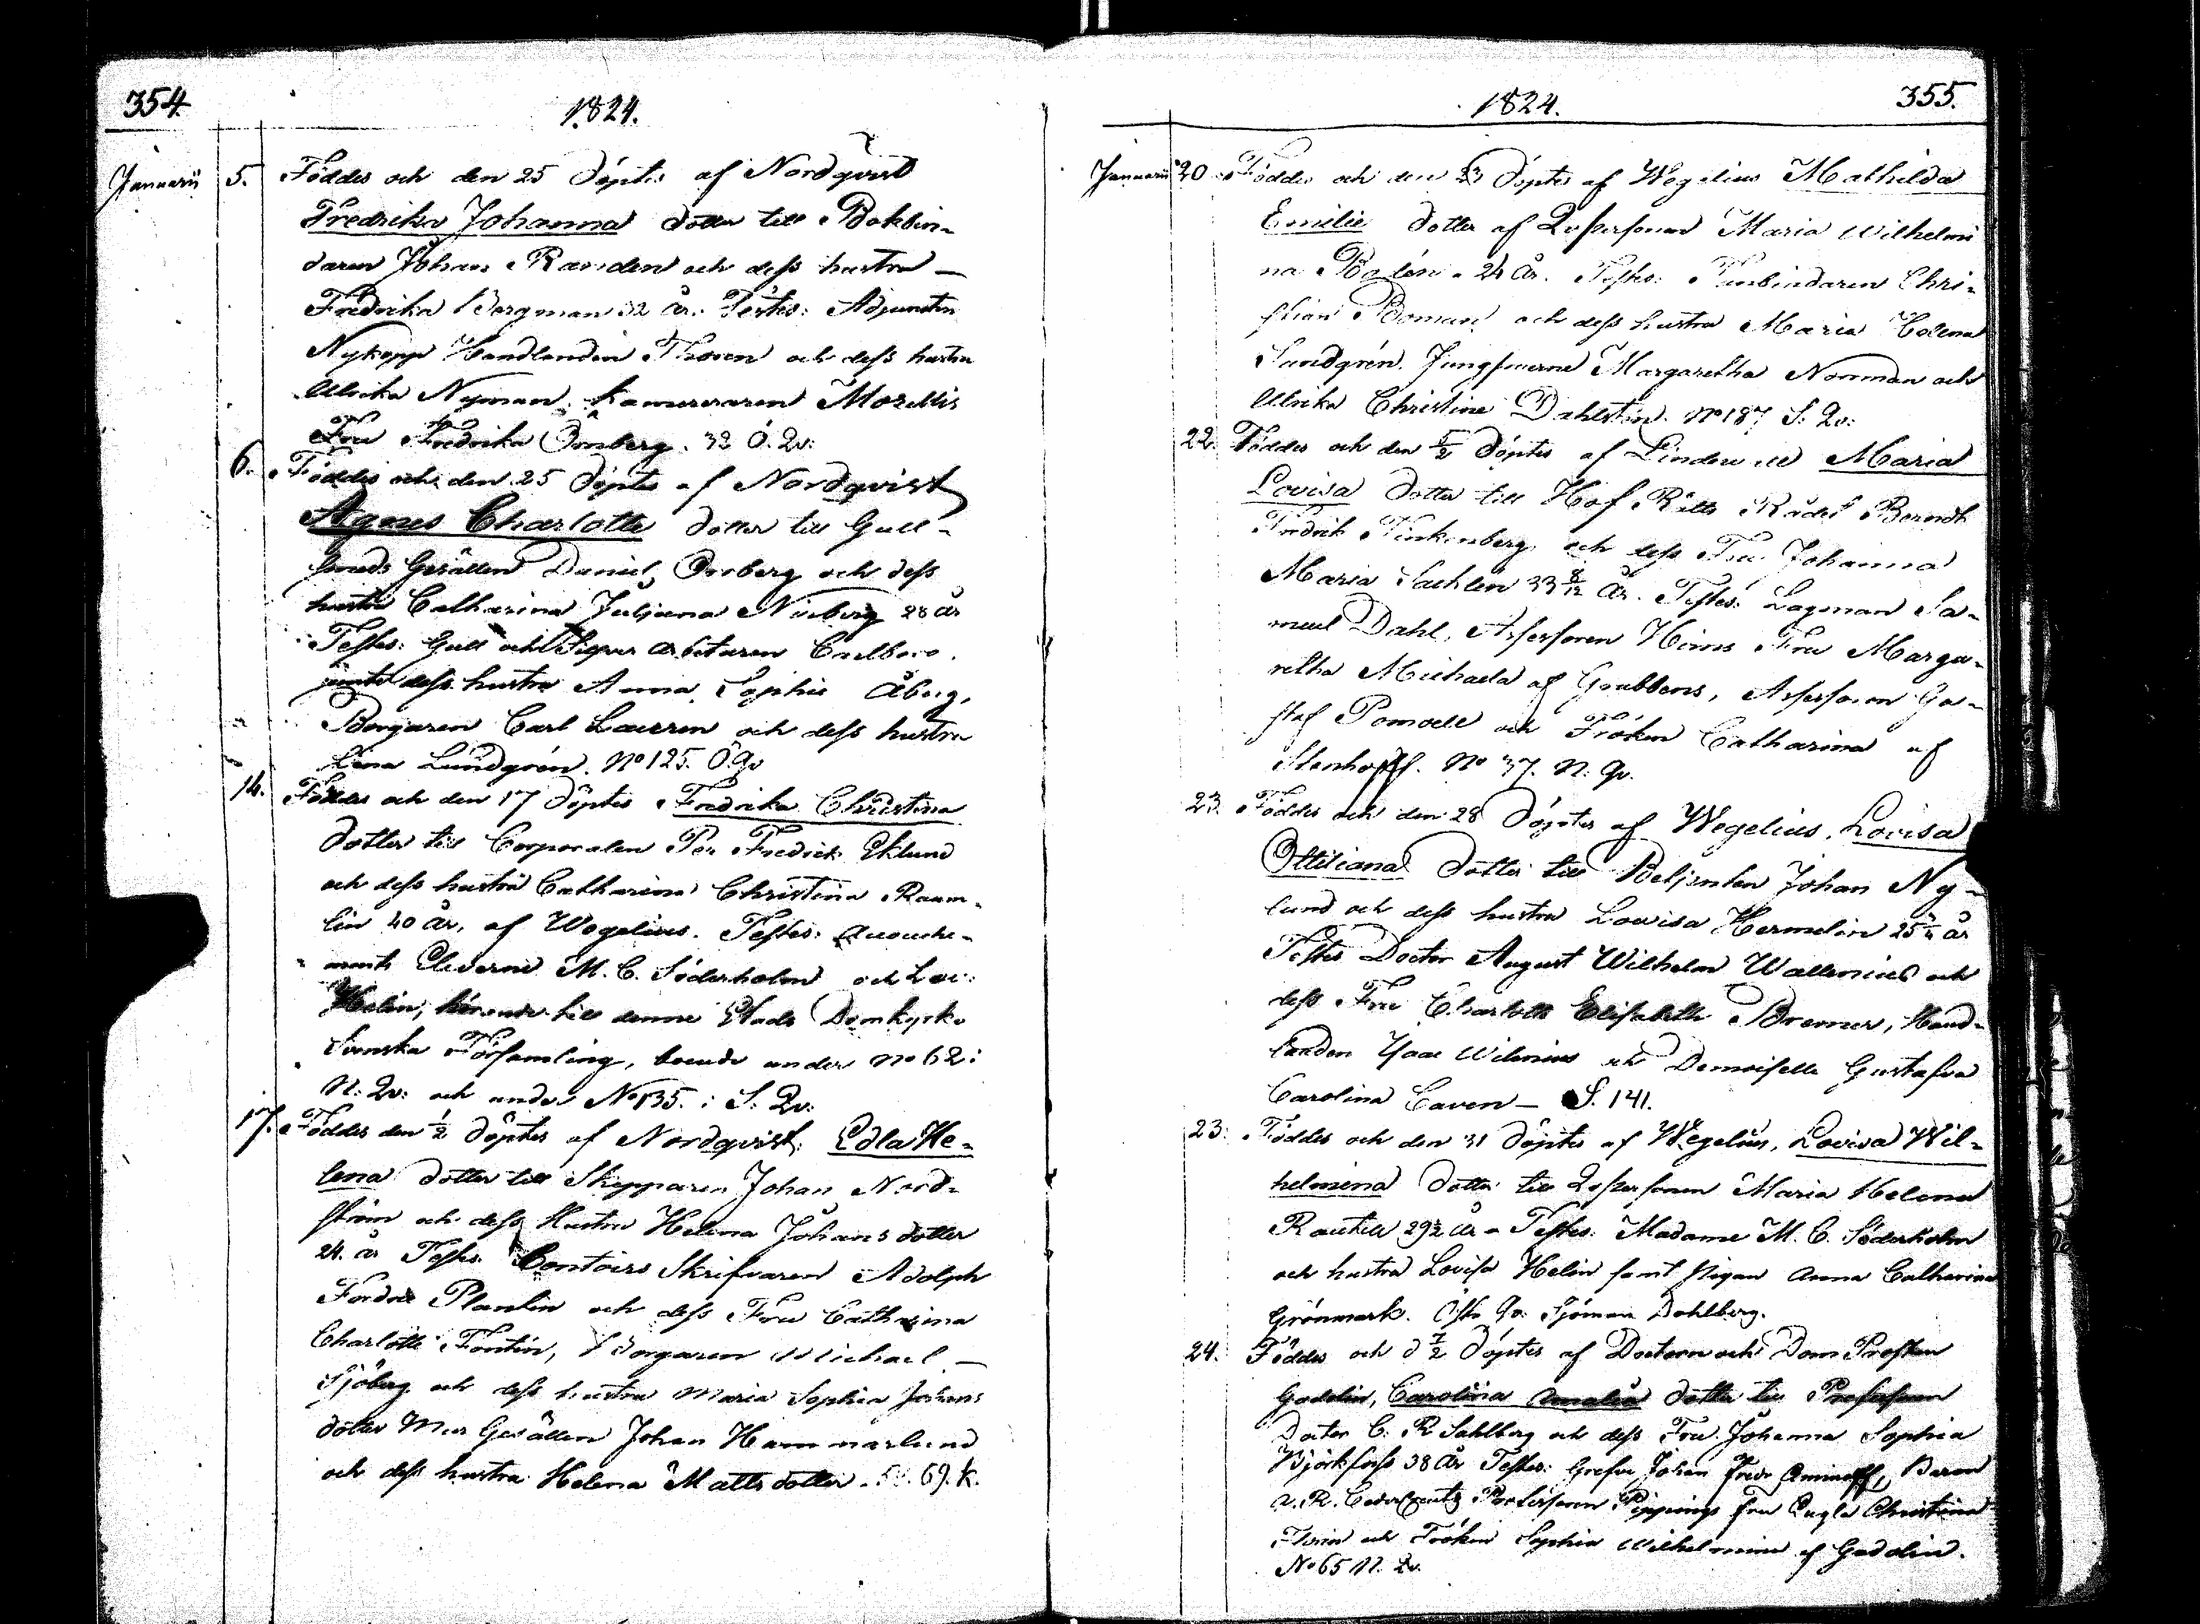 354.
1824.
Januarii 5. Föddes och den 25 döptes af Nordqvist
Fredrika Johanna dotter till Bokbin-
daren Johan Ramden och dess hustru —
Fredrika Bergman 32 år. Testes: Adjuncten
Nykopp Handlanden Thoren och dess hustru
Ulrika Nyman. Kamereraren Morellis
Fru Fredrika Örnberg. 32 Ö. Qv:
6. Föddes och den 25 döptes af Nordqvist
Agnes Charlotte dotter till Gull-
smeds Gesällen Daniel Broberg och dess
hustru Catharina Juliana Norberg 28 år
Testes: Gull och arbetaren Carlborg
jemte dess hustru Anna Sophia Åberg,
Borgaren Carl Lauren och dess hustru
Lena Lundgrén. No 125. Ö. Qv
14. Föddes och den 17 döptes Fredrika Christina
dotter till Corporalen Per Fredrik Eklund
och dess hustru Catharina Christina Raum-
lin 40 år, af Wegelius. Testes: Accouche-
ments Eleverne M. C. Söderholm och Lov:
Helin, hörande till denne Stads Domkyrko
Svenska Församling, boende under No 62 i
N: Qv: och under No 135. i S: Qv:
17. Föddes den 1/2 döptes af Nordqvist. Edla He-
lena dotter till Skepparen Johan Nord-
ström och dess Hustru Helena Johansdotter
24. år Testes. Contoirs Skrifvaren Adolph
Plantin och dess Fru Catharina
Charlotte Fontin, Borgaren Michael —
Sjöberg och dess hustru Maria Sophia Johans
dotter Mur Gesällen Johan Hammarlund
och dess hustru Helena Matts dotter. 69. K.
355.
1824.
Januarii 20. Föddes och den 23 döptes af Wegelius Mathilda
Emilie dotter af Qvpersonen Maria Wilhelmi
na Bolén. 24 år. Testes: Tunbindaren Chri-
stian Boman och dess hustru Maria Helena
Sundgrén. Jungfruerne Margaretha Norrman och
Ulrika Christine Dahlström. No 187 S: Qv:
22. Föddes och den 5/2 döptes af Lindewall Maria
Lovisa dotter till Hof Rätts Rådet Berndt
Fredrik Finkenberg och dess Fru Johanna
Maria Sacklén 33 8/12 år. Testes: Lagman Sa-
muel Dahl, Assessoren Hirns Fru Marga-
retha Michaela af Grubbens, Assessoren Gu-
staf Pomoell och Fröken Catharina af
Stenhoff. No 37. N: Qv.
23. Föddes och den 28 döptes af Wegelius, Lovisa
Ottiliana dotter till Betjenten Johan Ny-
lund och dess hustru Lovisa Hermelin 25 3/4 år
Testes Doctor August Wilhelm Wallenius och
dess Fru Charlotta Elisabeth Bremer, Hand-
landen Isac Wilenius och Demoiselle Gustafva
Carolina Caven — S. 141.
23. Föddes och den 31 döptes af Wegelius, Lovisa Wil-
helmina dotter till Qvpersonen Maria Helena
Rautell 29 1/2 år. Testes: Madame M. C. Söderholm
och hustru Lovisa Helin samt Pigan Anna Catharina
Grönmark. Öst. Qv. Sjöman Dahlberg.
24. Föddes och d 7/2 döptes af Doctorn och Dom Prosten
Gadolin, Carolina Amalia dotter till Professoren
Doctor C. R Sahlberg och dess Fru Johanna Sophia
Björkfors 38 år Testes: Grefve Johan Fredr Aminoff, Baron
A. R. Cedercreutz Professoren Pippings Fru Engla Christina
och Fröken Sophia Wilhelmina af Gadolin.
No 65 N. Qv.